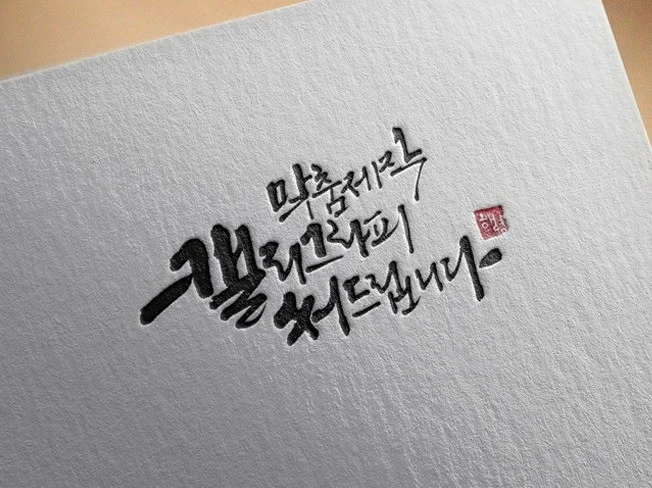 맞춤제작
캘리그라피
써드립니다.